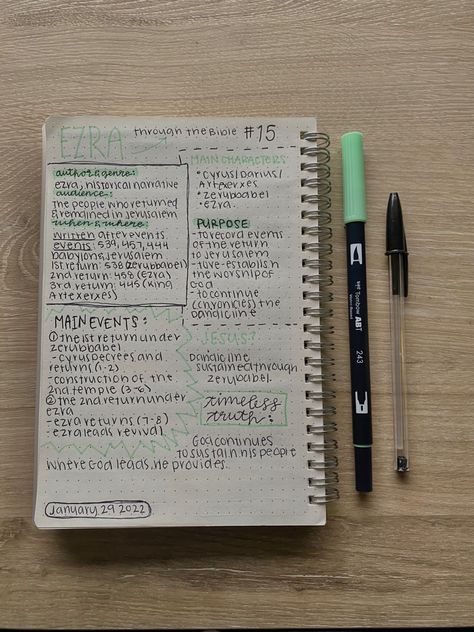 EZRA through the Bible #15
author & genre:
ezra, historical narrative
audience:
The people who returned
& remained in Jerusalem
when & where:
written after events
events: 539, 457, 444
babylon & Jerusalem
1st return: 538 (Zerubbabel)
2nd return: 458 (Ezra)
3rd return: 445 (King
Artexerxes)
MAIN CHARACTERS
• Cyrus/Darius/
Artexerxes
• zerubbabel
• ezra
PURPOSE
- to record events
of the return
to Jerusalem
- to re-establish
the worship of
God
- to continue
(chronicles) the
davidic line
MAIN EVENTS:
① the 1st return under
zerubbabel
- cyrus decrees and
returns (1-2)
- construction of the
2nd temple (3-6)
② the 2nd return under
ezra
- ezra returns (7-8)
- ezra leads revival
JESUS?
Davidic line
sustained through
zerubabel.
timeless
truth:
God continues
to sustain his people
where God leads, He provides.
January 29 2022
Tombow ABT
243